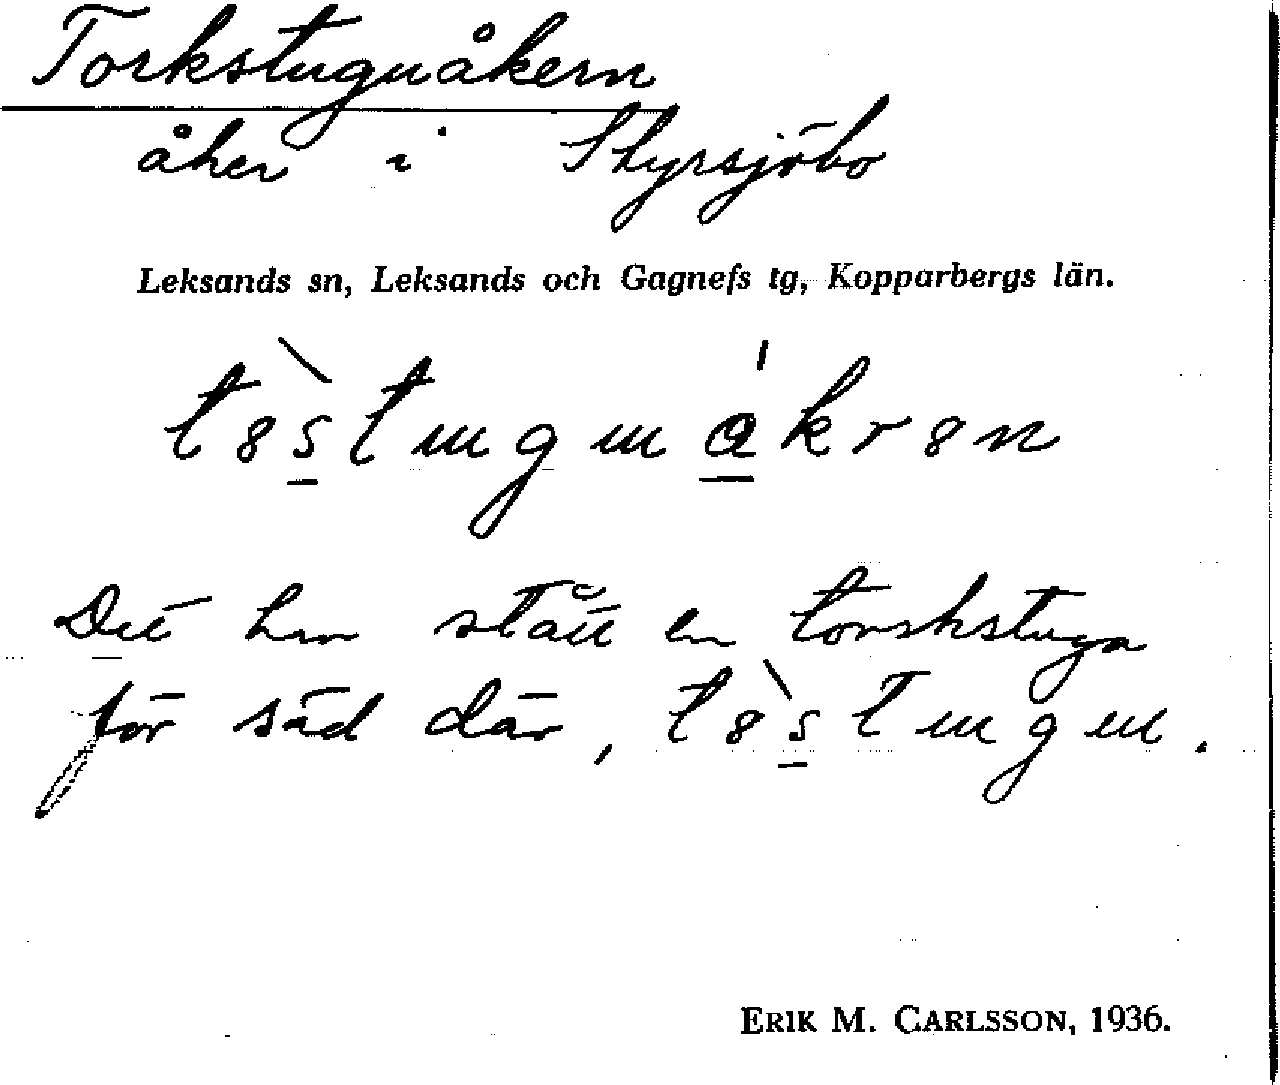 Torkstuguåkern
åker i Styrsjöbo
Leksands sn, Leksands och Gagnefs tg, Kopparbergs län.
t8̀s̱tuguáḵr8n
Det har stått en torkstuga
för säd där, t8̀s̱tugu.
ERIK M. CARLSSON, 1936.